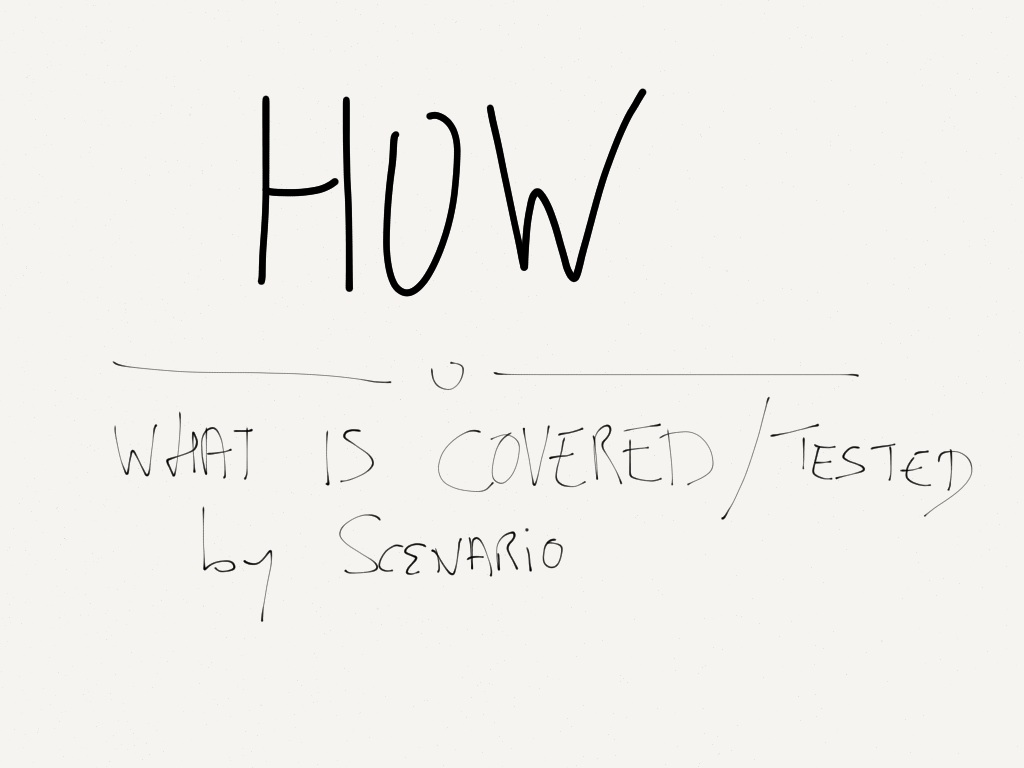 HOW
WHAT IS COVERED/TESTED
by SCENARIO